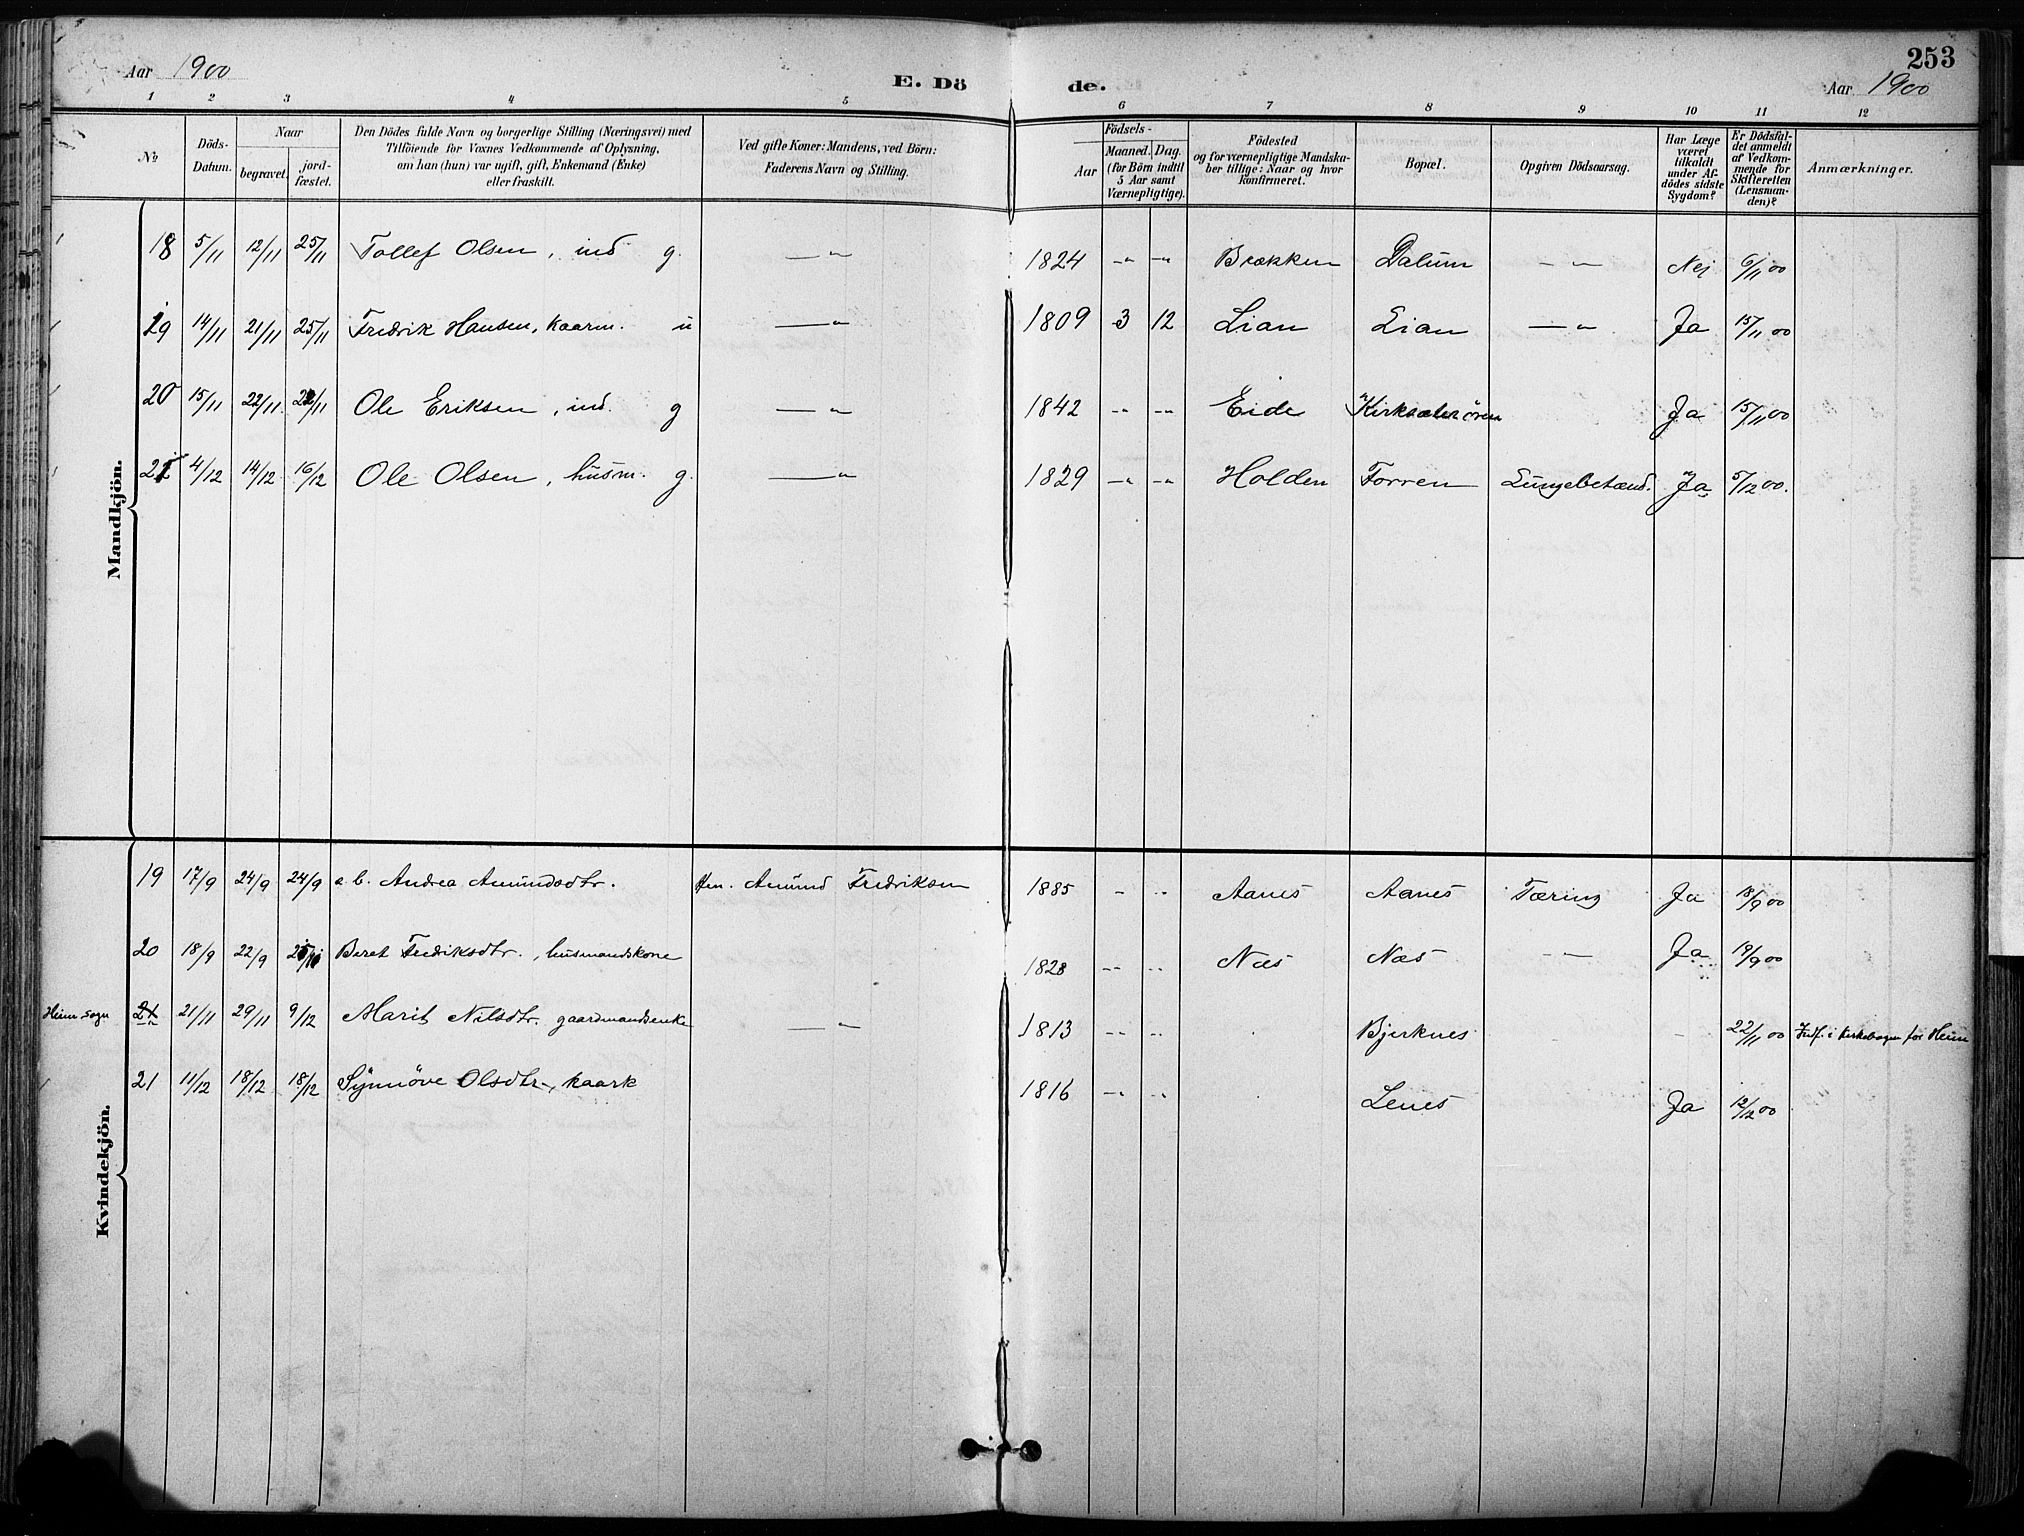 253
Aar 1900 E. Dö de. Aar 1900
1 2 3 4 5 6 7 8 9 10 11 12
№
Döds-Datum.
Naar
begravet.
jord-fæstet.
Den Dödes fulde Navn og borgerlige Stilling (Næringsvei) med
Tilföiende for Voxnes Vedkommende af Oplysning,
om han (hun) var ugift, gift, Enkemand (Enke)
eller fraskilt.
Ved gifte Koner: Mandens, ved Börn:
Faderens Navn og Stilling.
Födsels-
Aar
Maaned. Dag.
(for Börn indtil
5 Aar samt
Værnepligtige).
Födested
og for værnepligtige Mandska-
ber tillige: Naar og hvor
konfirmeret.
Bopæl.
Opgiven Dödsaarsag.
Har Læge
været
tilkaldt
under Af-
dödes sidste
Sygdom?
Er Dödsfal-
det anmeldt
af Vedkom-
mende for
Skifteretten
(Lensman-
den)?
Anmærkninger.
Mandkjön.
18 5/11 12/11 25/11 Tollef Olsen, ind g. —"— 1824 -"- -"- Brækken Dalum —"— Nej 6/11 00
19 14/11 21/11 25/11 Fredrik Hansen, kaarm. u —"— 1809 3 12 Lian Lian —"— Ja 15/11 00
20 15/11 22/11 22/11 Ole Eriksen, ind. g —"— 1842 -"- -"- Eide Kirksæterören Ja 15/11 00
21 4/12 14/12 16/12 Ole Olsen, husm. g. —"— 1829 -"- -"- Holden Forren Lungebetænd. Ja 5/12 00.
Kvindekjön.
19 17/9 24/9 24/9 e.b. Andrea Amundsdtr. Amund Fredriksen 1885 - -"- Aanes Aanes Tæring Ja 18/9 00
20 18/9 22/9 Beret Fredriksdtr., husmandskone 1828 -"- -"- Næs Næs —"— Ja 19/9 00
Heim sogn 21/11 29/11 9/12 Marit Nilsdtr. gaardmandsenke —"— 1813 -"- -"- Bjerknes - 22/11 00 Indf. i Kirkebogen for Heim
21 11/12 18/12 18/12 Synnöve Olsdtr., kaark 1816 -"- -"- Lenes Ja 12/12 00